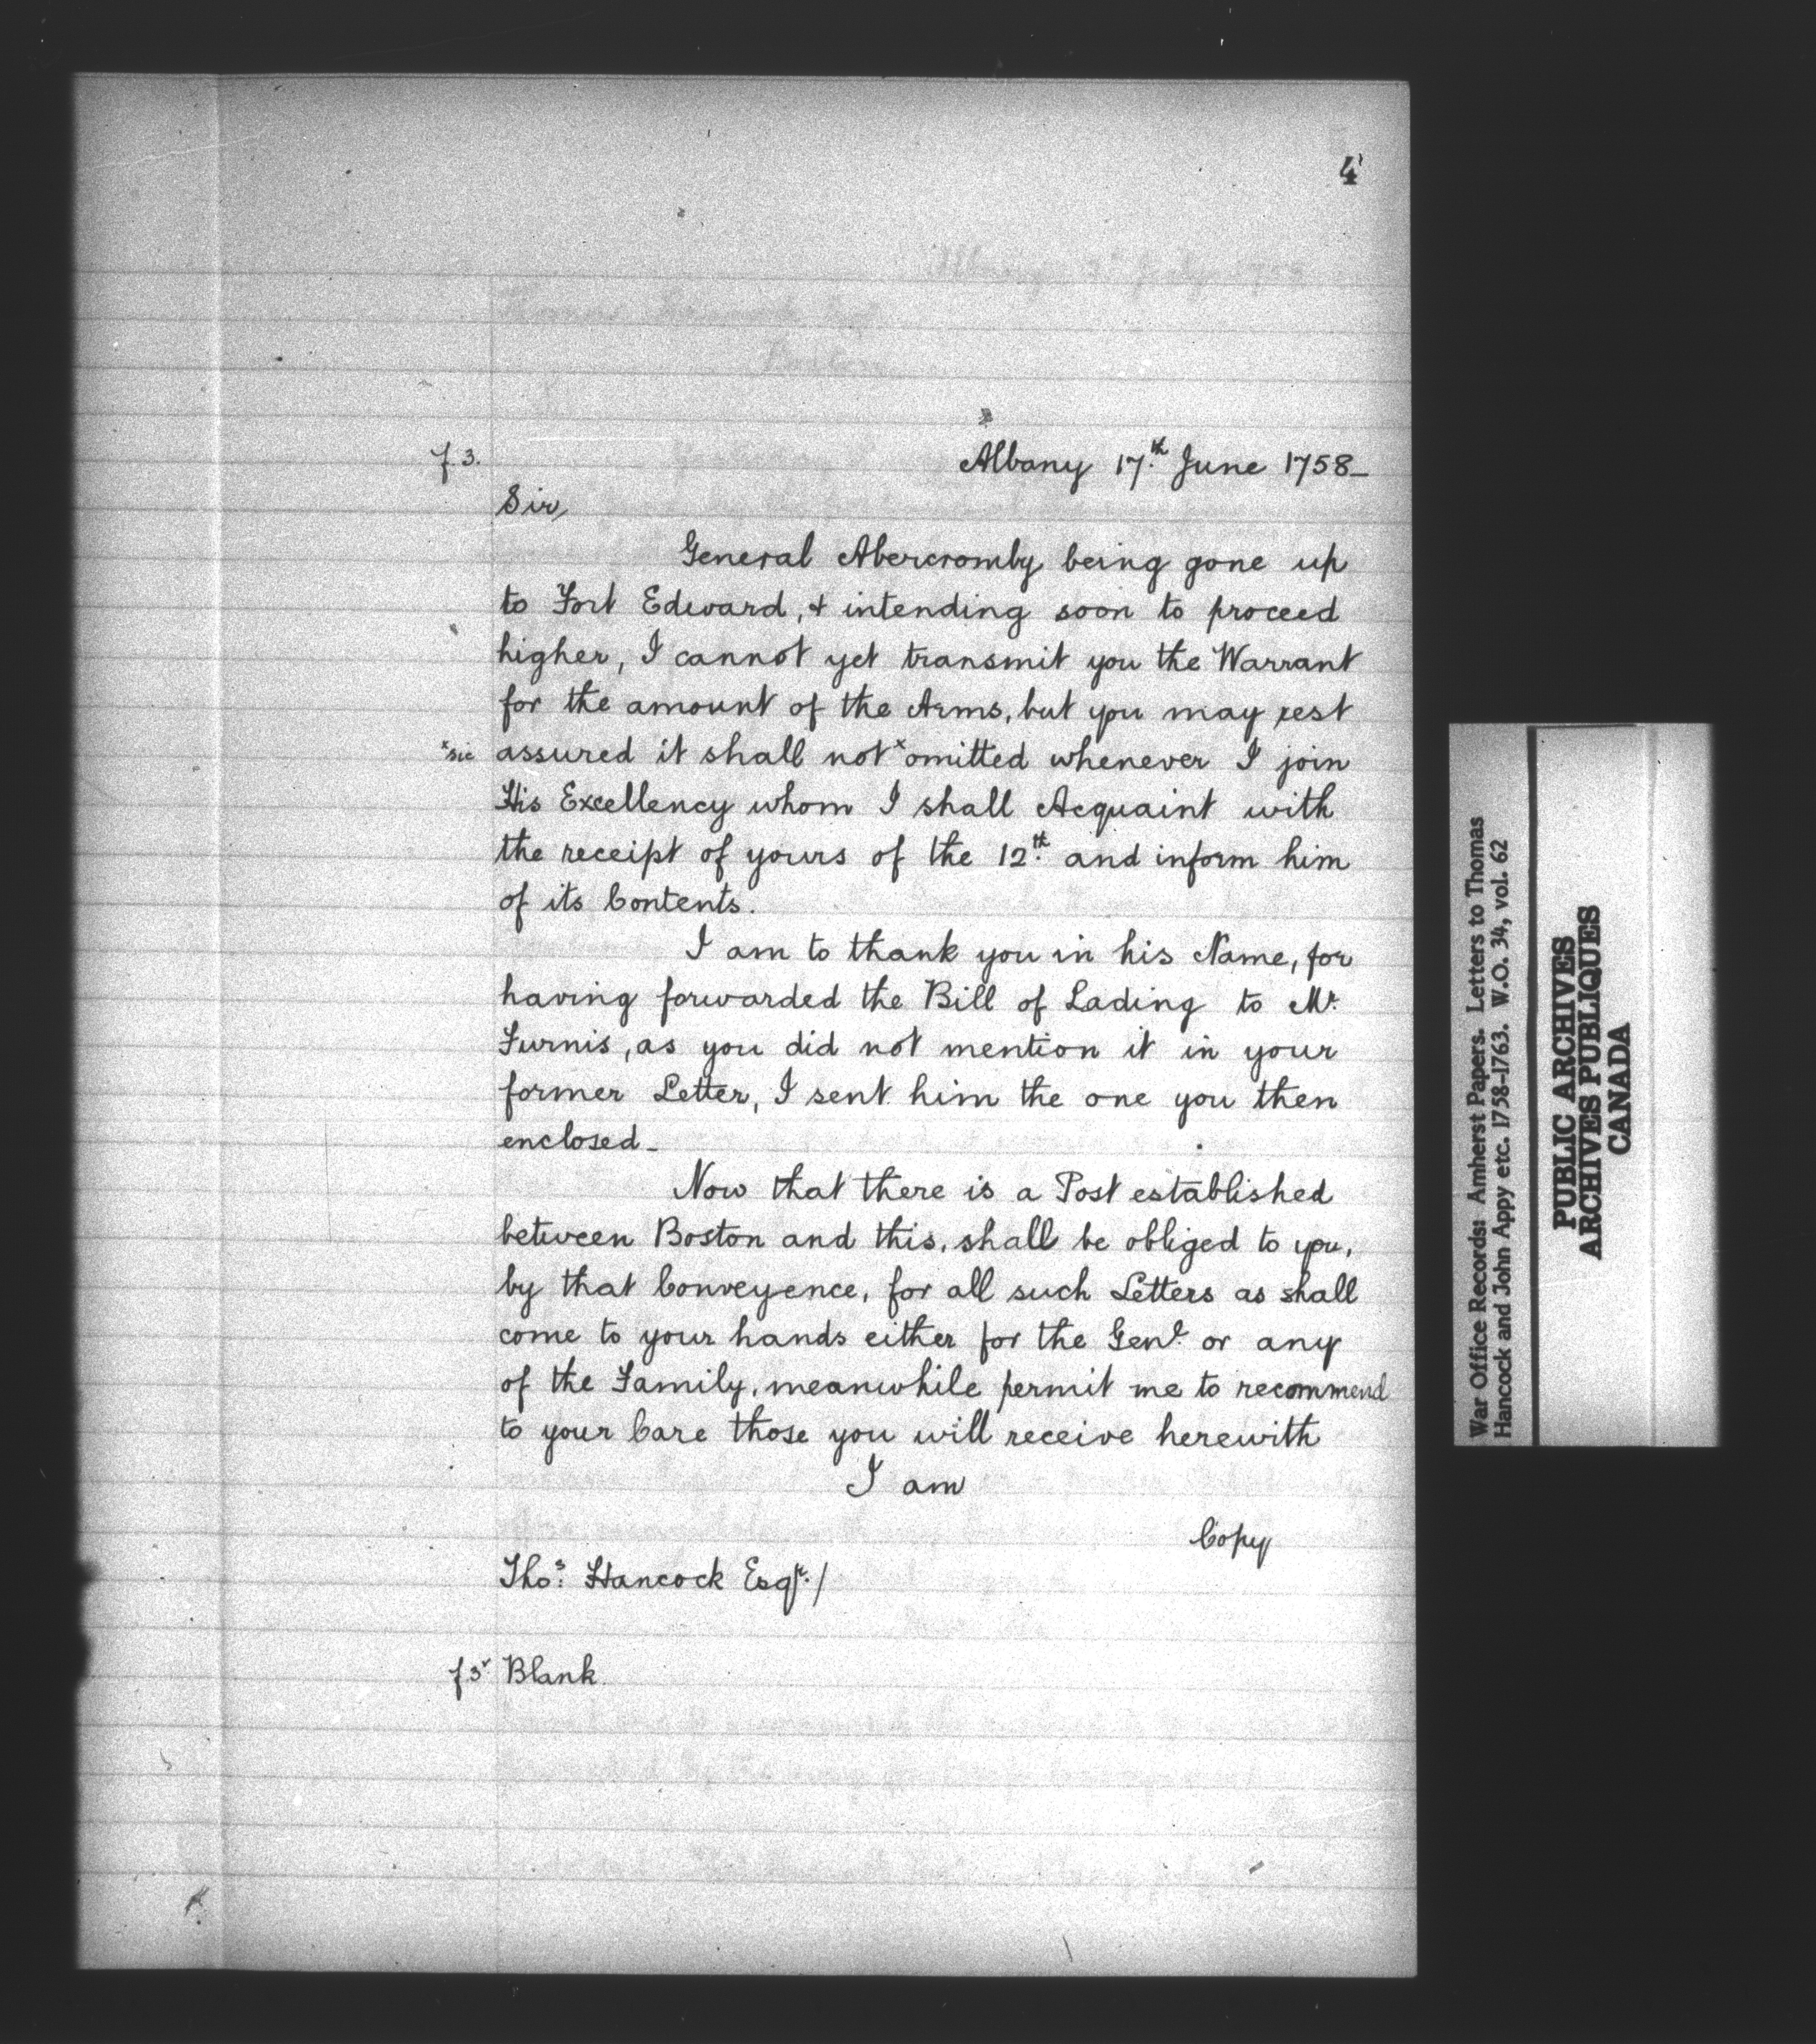 4
f. 3.
Albany 17.th June 1758_
Sir,
General Abercromby being gone up
to Fort Edward, & intending soon to proceed
higher, I cannot yet transmit you the Warrant
for the amount of the Arms, but you may rest
x sic assured it shall not x omitted whenever I join
His Excellency whom I shall Acquaint with
the receipt of yours of the 12.th and inform him
of its Contents.
I am to thank you in his Name, for
having forwarded the Bill of Lading to Mr.
Furnis, as you did not mention it in your
former Letter, I sent him the one you then
enclosed_
Now that there is a Post established
between Boston and this, shall be obliged to you,
by that Conveyence, for all such Letters as shall
come to your hands either for the Genl. or any
of the Family, meanwhile permit me to recommend
to your Care those you will receive herewith
I am
Copy
Thos: Hancock Esqr./
f 3v Blank.
War Office Records: Amherst Papers. Letters to Thomas
Hancock and John Appy etc. 1758-1763. W.O. 34, vol. 62
PUBLIC ARCHIVES
ARCHIVES PUBLIQUES
CANADA